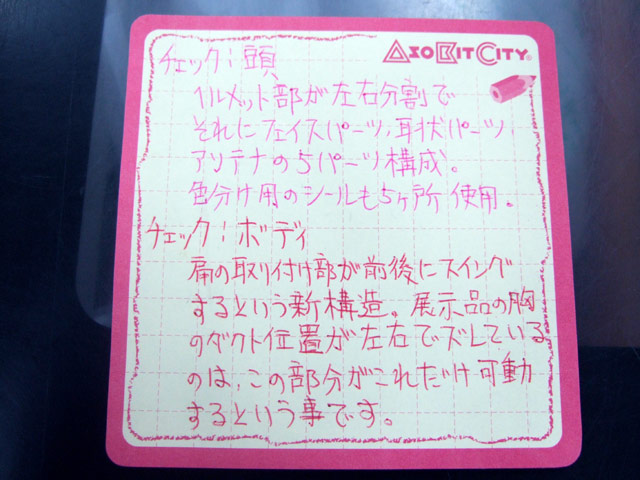 AsoBitCity
チェック:頭
ヘルメット部が左右分割で
それにフェイスパーツ、耳状パーツ
アンテナの5パーツ構成。
色分け用のシールも5ヶ所使用。
チェック:ボディ
肩の取り付け部が前後にスイング
するという新構造。展示品の胸
のダクト位置が左右でズレている
のは、この部分がこれだけ可動
するという事です。